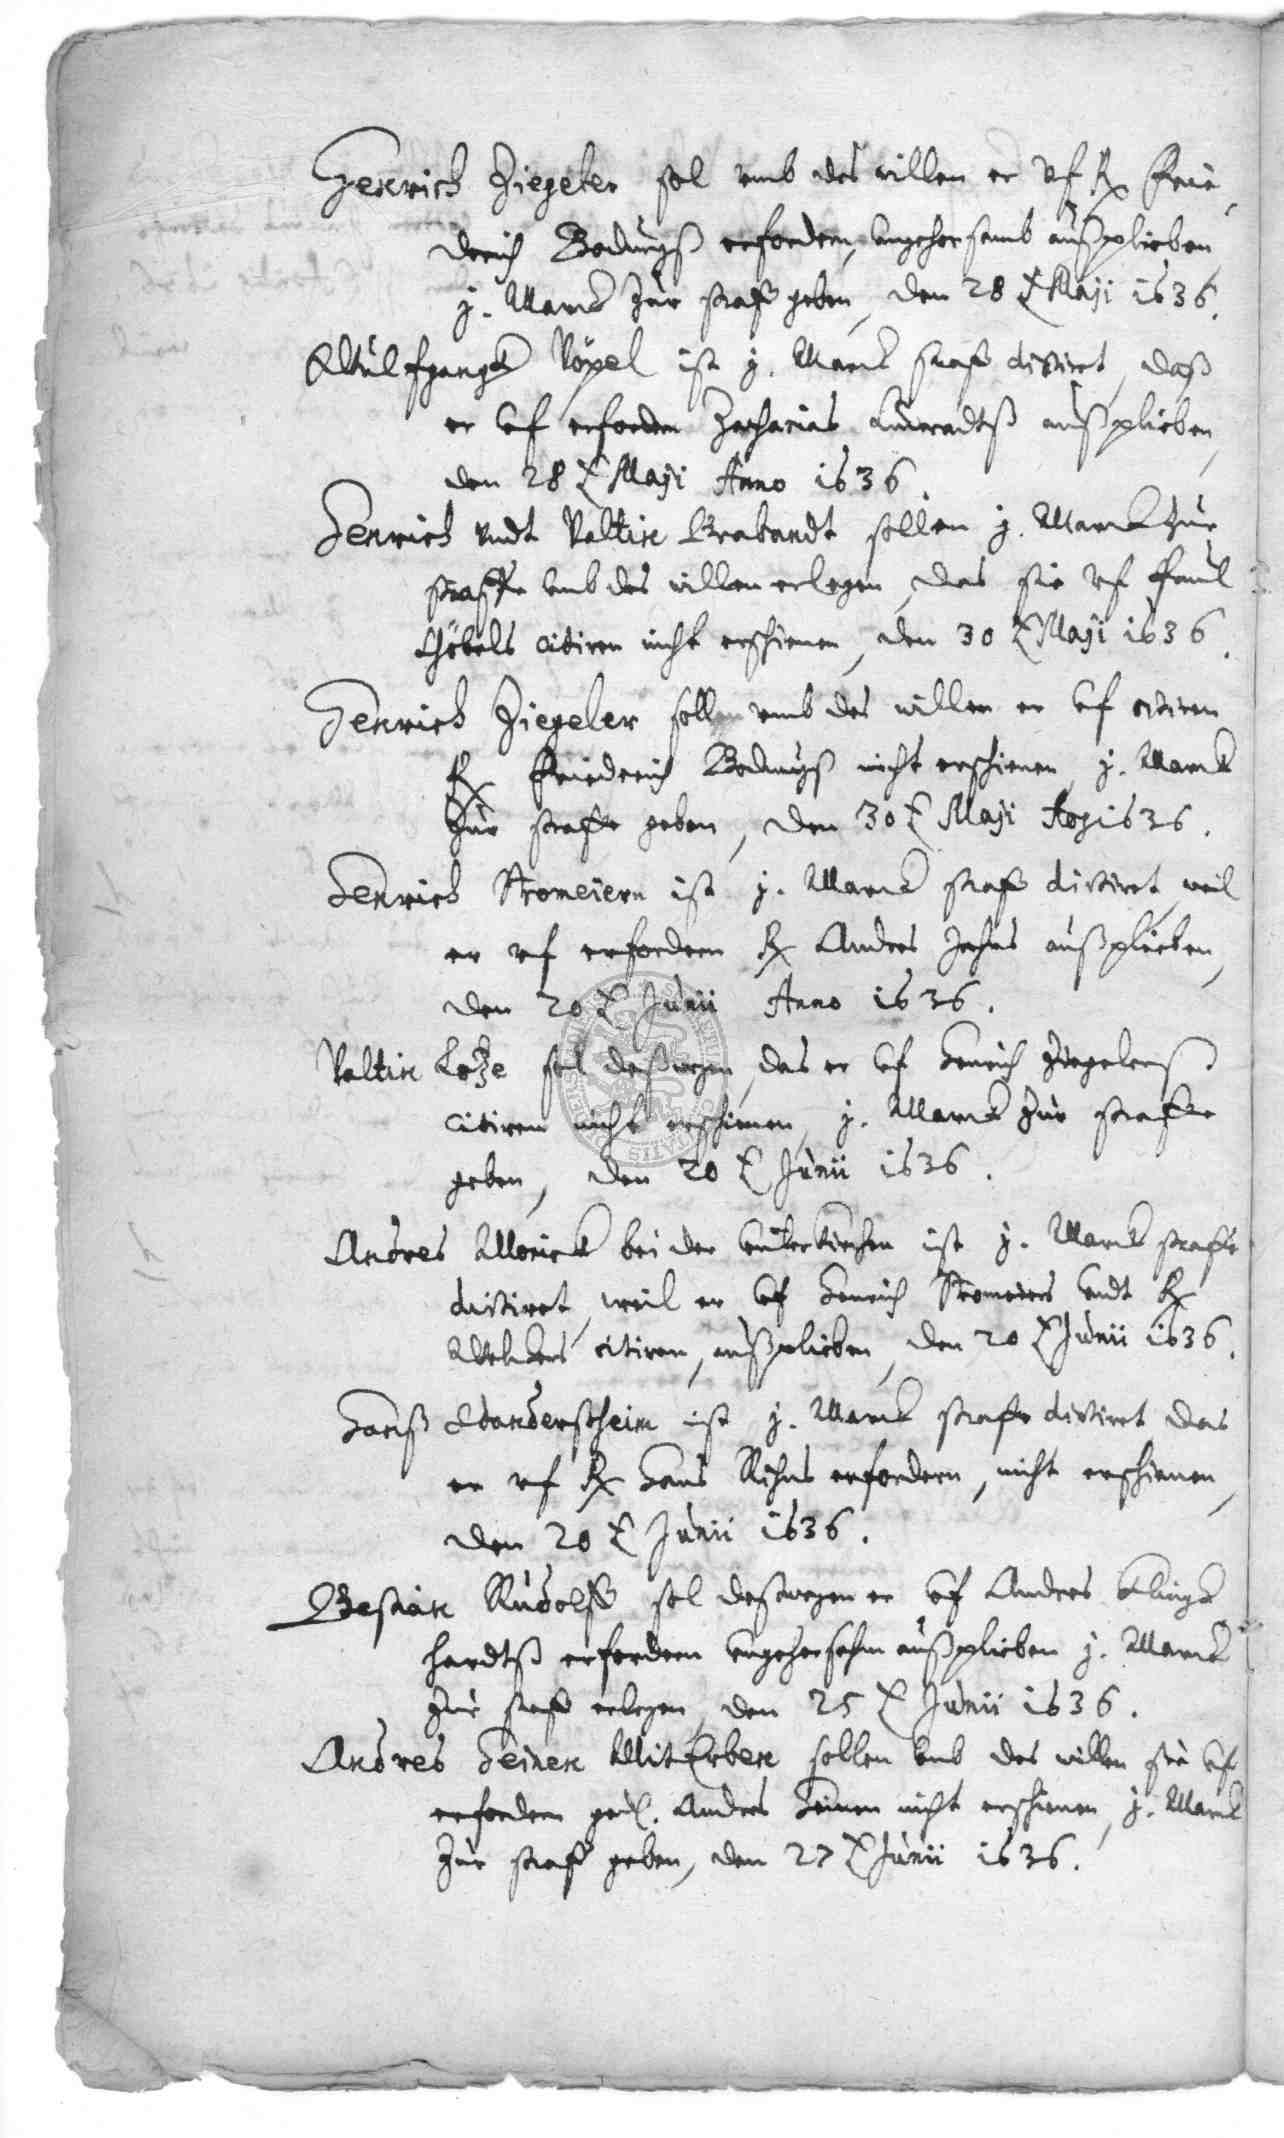 Henrich Ziegeler sol umb des willen er uf H Frie
derich Bodungß erfordern, ungehorsamb außplieben
j. Marck zur straf geben, den 28 t Maji 1636.
Wulfgangk Köpel ist j. Marck straf dictiret, daß
er uf erfordern Zacharias Andreadtß außplieben,
den 28 t Maji Anno 1636.
Henrich undt Valtin Brabandt sollen j. Marck zur
straffe umb des willen erlegen, das sie uf Paul
Göbels citiren nicht erschienen, den 30 t Maji 1636.
Henrich Ziegeler sollen umb des willen er uf citiren
H Friederich Bodungß nicht erschienen, j. Marck
zur strafe geben, den 30 t Maji Ao 1636.
Henrich Stromeiern ist j. Marck straf dictiret, weil
er uf erfordern H Andres Jahns außplieben,
den 20 t Junii Anno 1636.
Valtin Loze sol deßwegen, das er uf Henrich Ziegelerß
citiren nicht erschienen, j. Marck zur strafe
geben, den 20 t Junii 1636.
Andres Morick bei der unterkirchen ist j. Marck strafe
dictiret, weil er uf Henrich Stromeiers undt H
citiren, außplieben, den 20 t Junii 1636.
Hanß Wandersheim ist j. Marck strafe dictiret das
er uf H Hans Rihns erfordern, nicht erschienen,
den 20 t Junii 1636.
Bastian Rudolff sol deßwegen er uf Andres Kling
hardtß erfordern ungehorsahm außplieben j. Marck
zur straf erlegen den 25 t Junii 1636.
Andres Heinen MitErben sollen umb des willen sie uf
erfordern ged. Andres Heinen nicht erschienen, j. Marck
zur straf geben, den 27 t Junii 1636.